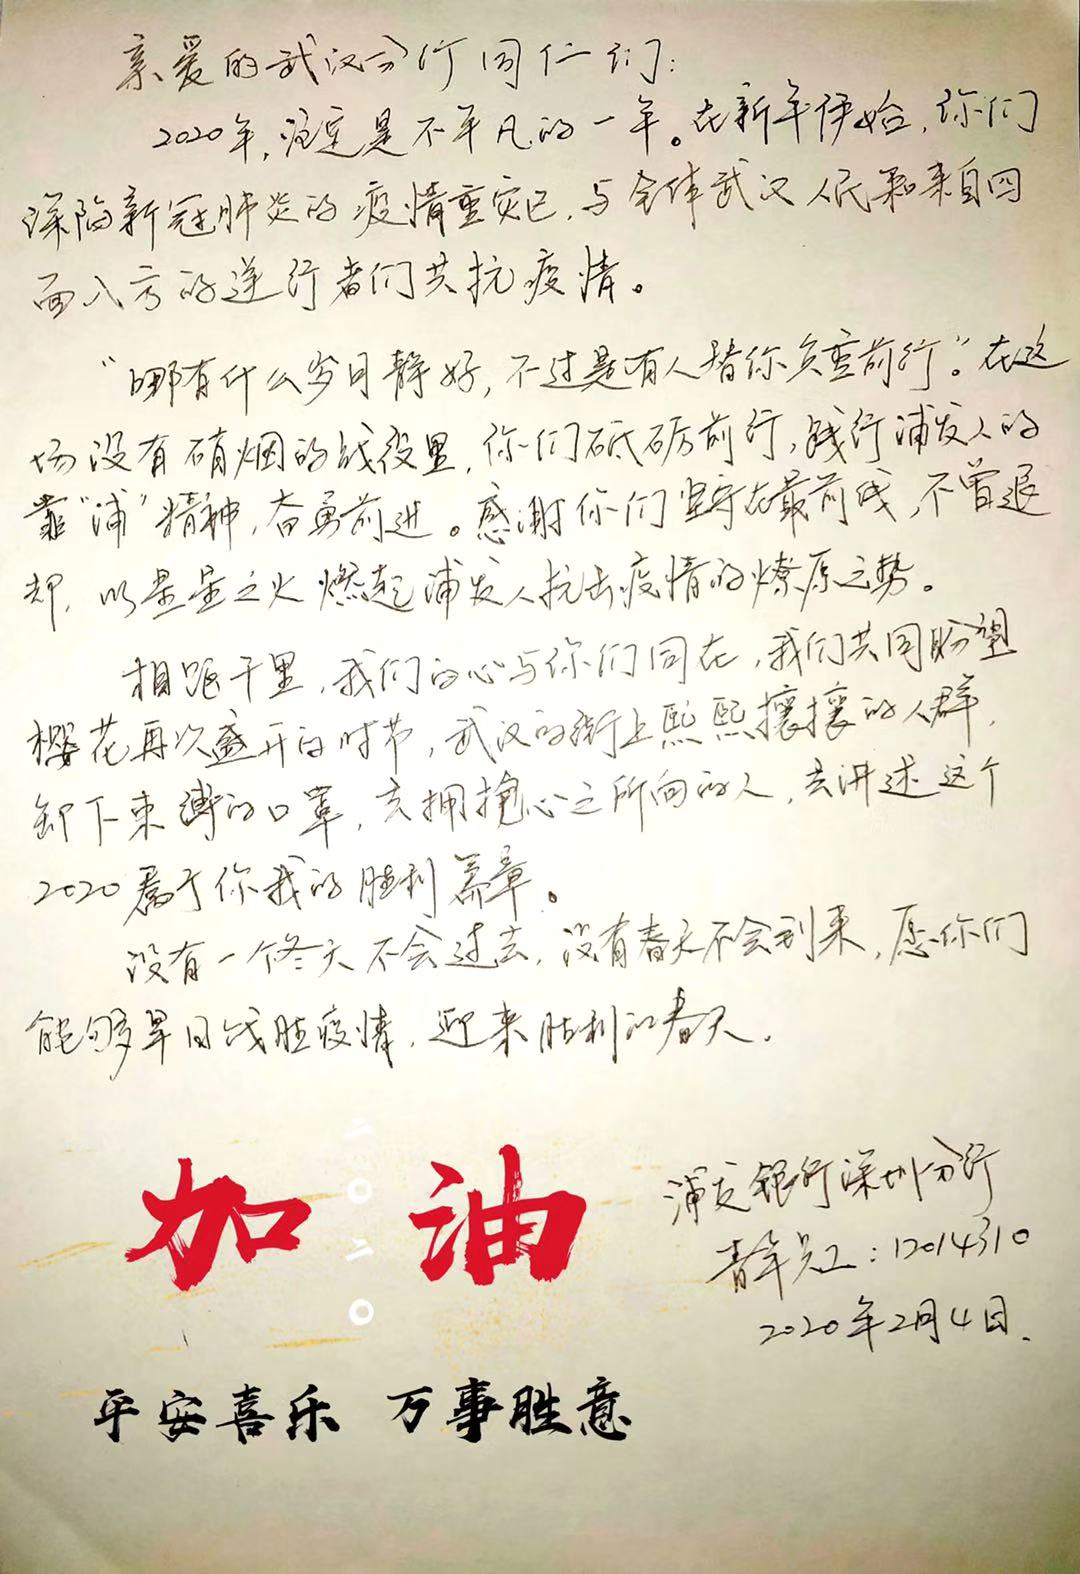 亲爱的武汉分行同仁们：
2020年，注定是不平凡的一年。在新年伊始，你们
深陷新冠肺炎的疫情重灾区，与全体武汉人民和来自四
面八方的逆行者们共抗疫情。
“哪有什么岁月静好，不过是有人替你负重前行”。在这
场没有硝烟的战役里，你们砥砺前行，践行浦发人的
靠“浦”精神，奋勇前进。感谢你们坚守在最前线，不曾退
却，以星星之火燃起浦发人抗击疫情的燎原之势。
相距千里，我们的心与你们同在，我们共同盼望
樱花再次盛开的时节，武汉的街上熙熙攘攘的人群，
卸下束缚的口罩，去拥抱心之所向的人，去讲述这个
2020属于你我的胜利篇章。
没有一个冬天不会过去，没有春天不会到来，愿你们
能够早日战胜疫情，迎来胜利的春天。
浦发银行深圳分行
青年员工：12014310
2020年2月4日.
加油
二〇二〇
平安喜乐 万事胜意